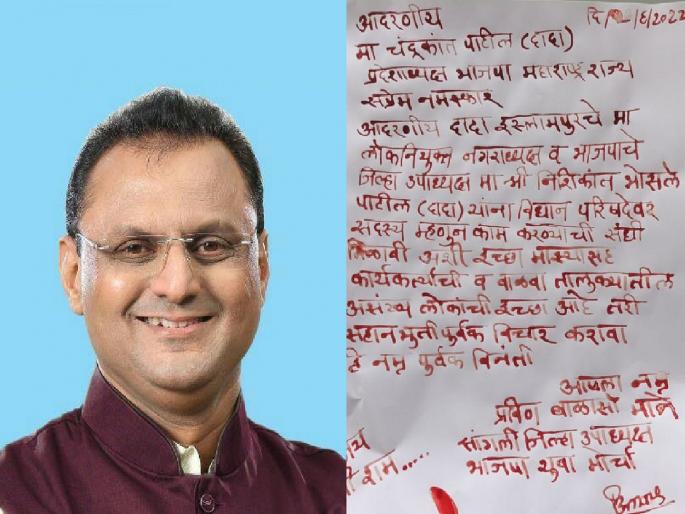 आदरणीय
दि/ /६/2022
मा चंद्रकांत पाटील (दादा)
प्रदेशाध्यक्ष भाजपा महाराष्ट्र राज्य
सप्रेम नमस्कार
आदरणीय दादा इस्लामपुरचे मा
लोकनियुक्त नगराध्यक्ष व भाजपाचे
जिल्हा उपाध्यक्ष मा श्री निशिकांत भोसले
पाटील (दादा) यांना विधान परिषदेवर
सदस्य म्हणुन काम करण्याची संधी
मिळावी अशी इच्छा माझ्यासह
कार्यकर्त्यांची व वाळवा तालुक्यातील
असंख्य लोकांची इच्छा आहे तरी
सहानभुतीपुर्वक विचार करावा
हि नम्र पुर्वक विनंती
आपला नम्र
प्रविण बाळासो माने
सांगली जिल्हा उपाध्यक्ष
भाजपा युवा मोर्चा